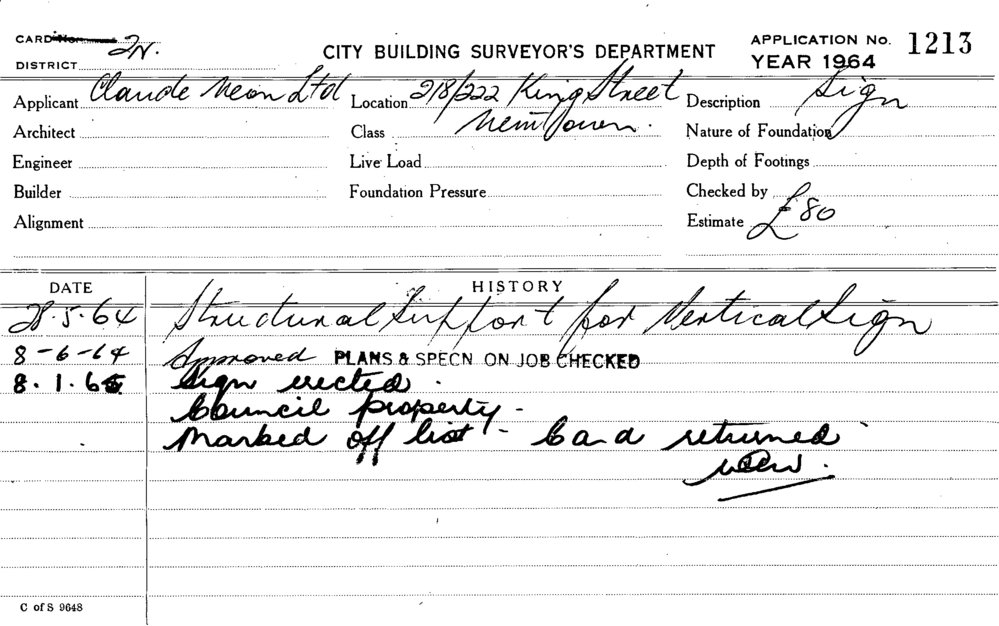 CARD
DISTRICT 2N.
CITY BUILDING SURVEYOR'S DEPARTMENT
APPLICATION No. 1213
YEAR 1964
Applicant Claude Neon Ltd Location 218/222 King Street Description Sign
Architect Class Newtown. Nature of Foundation
Engineer Live Load Depth of Footings
Builder Foundation Pressure Checked by
Alignment Estimate £80
DATE HISTORY
28.5.64 Structural Support for Vertical Sign
8-6-64 Approved PLANS & SPECN ON JOB CHECKED
8.1.65 Sign erected.
Council property -
Marked off list - Card returned
C of S 9648